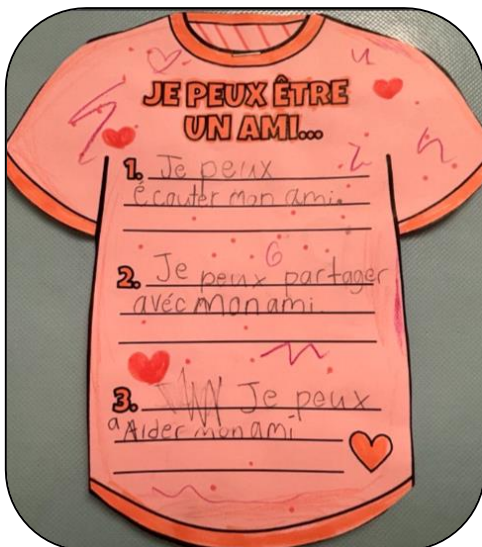 JE PEUX ÊTRE
UN AMI...
1. Je peux
Écouter mon ami.
2. Je peux partager
avéc mon ami.
3. Je peux
a Aider mon ami